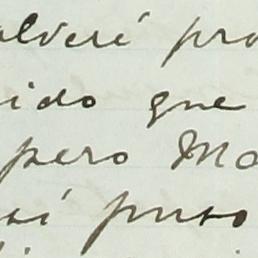 olveré pro
ido que
pero Ma
sí puso